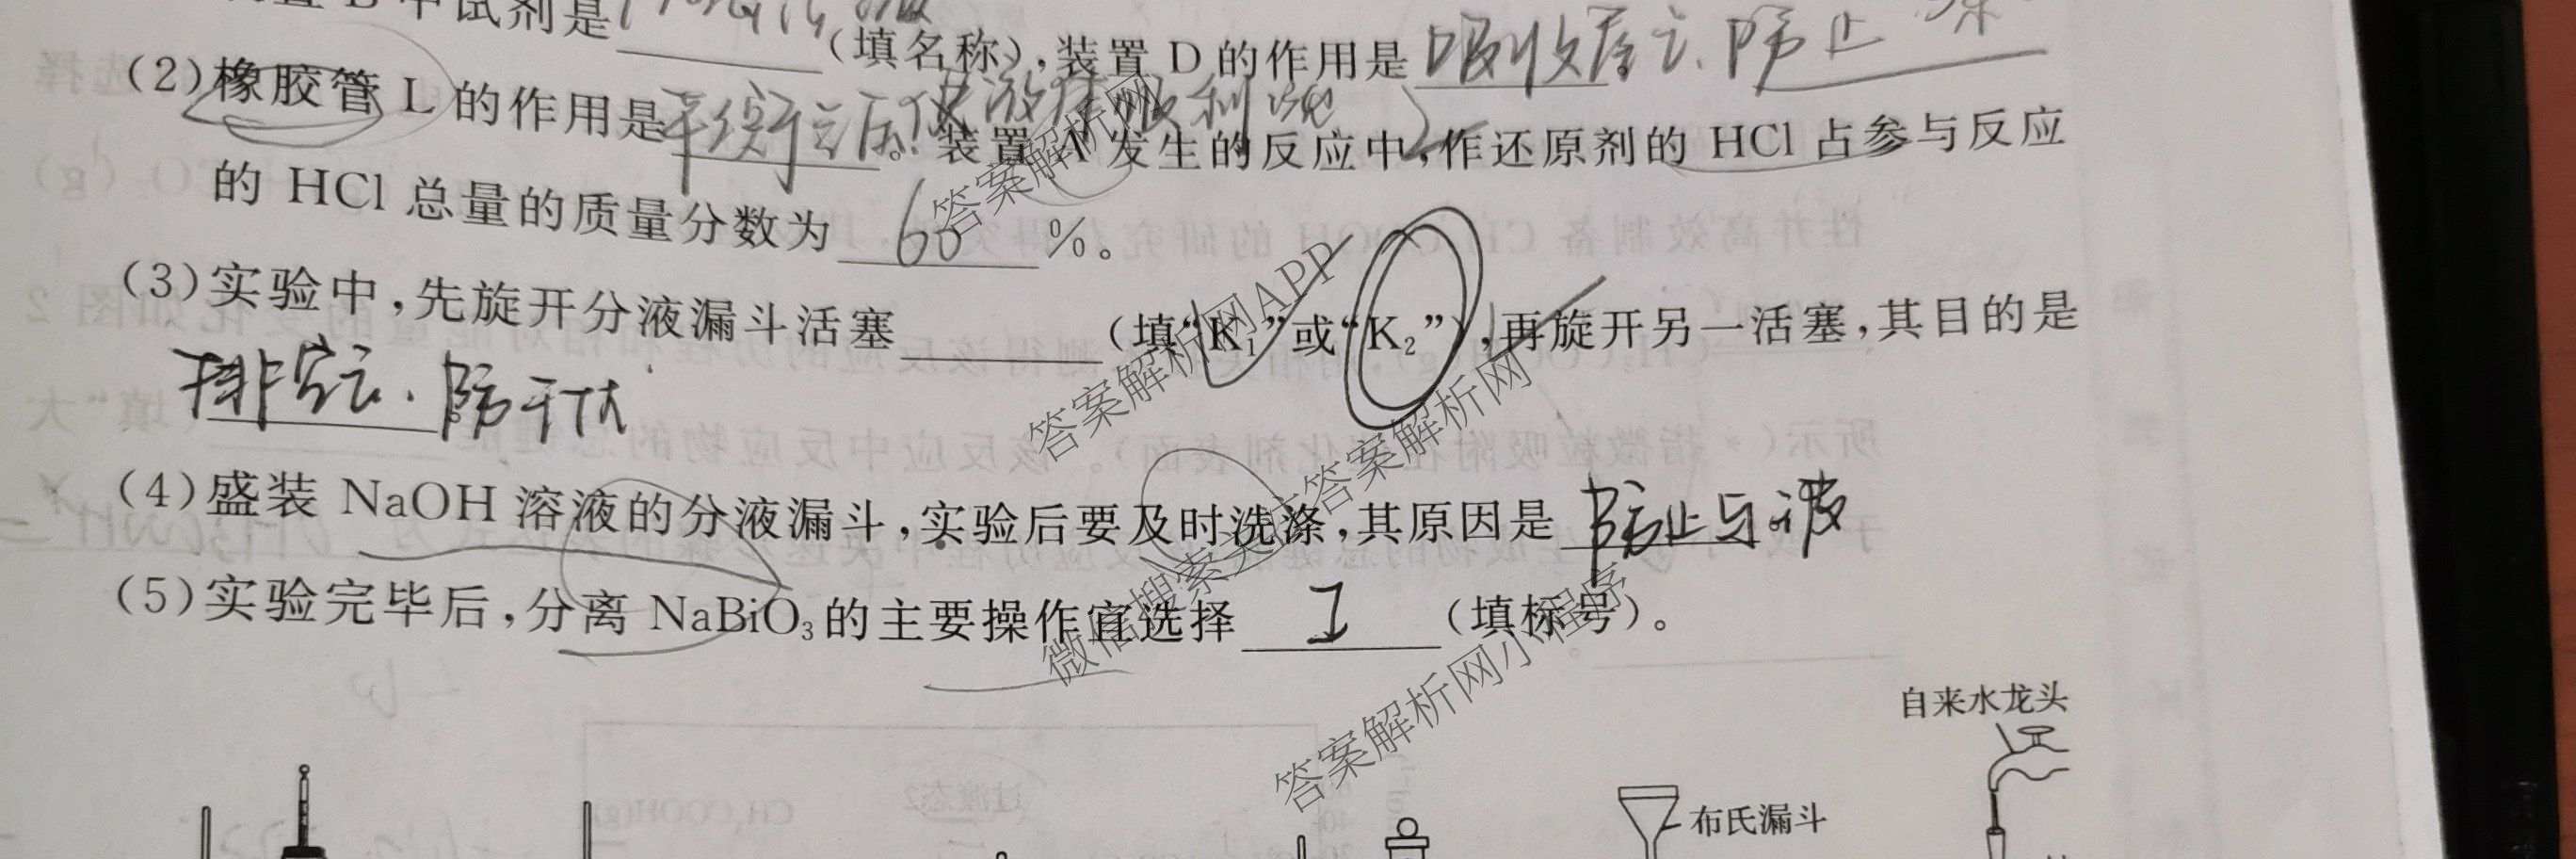 中试剂是 (填名称),装置 D 的作用是 吸收 防止
(2)橡胶管 L 的作用是 平衡 使液体顺利 。装置 A 发生的反应中,作还原剂的 HCl 占参与反应
的 HCl 总量的质量分数为 60 %。
(3)实验中,先旋开分液漏斗活塞 (填“K₁”或“K₂”),再旋开另一活塞,其目的是
排空 防干扰
(4)盛装 NaOH 溶液的分液漏斗,实验后要及时洗涤,其原因是 防止与玻
(5)实验完毕后,分离 NaBiO₃的主要操作宜选择 I (填标号)。
自来水龙头
布氏漏斗
答案解析网
答案解析网APP
答案解析网
微信搜索
答案解析网小程序